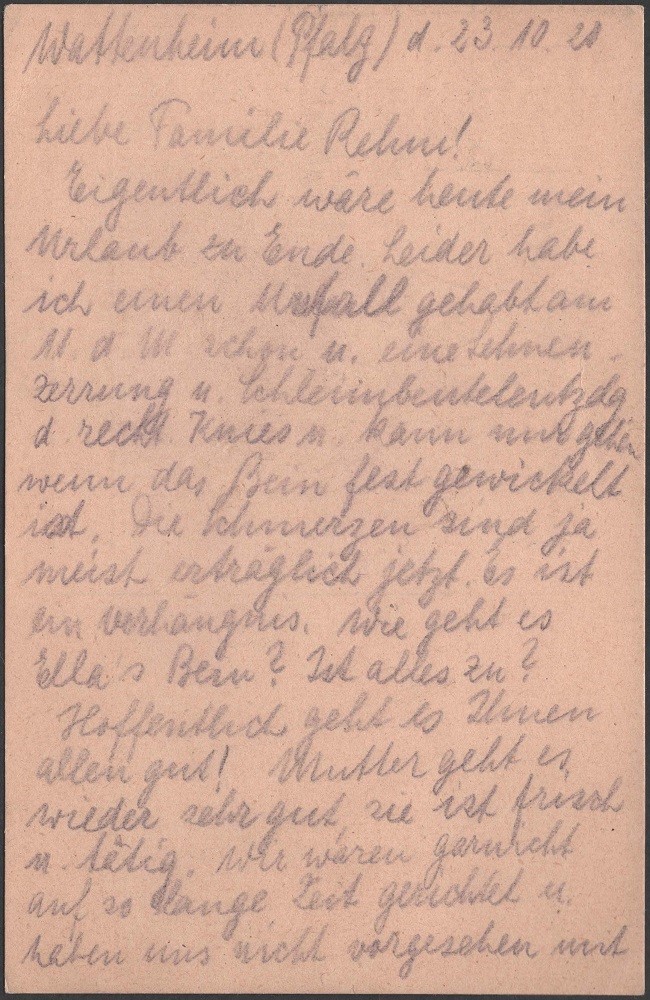 Wattenheim (Pfalz) d. 23. 10. 20
Liebe Familie Rehm!
Eigentlich wäre heute mein
Urlaub zu Ende. Leider habe
ich einen Unfall gehabt am
11. d M schon u. eine Sehnen-
zerrung u. Schleimbeutelentzdg
d. recht. Knies u. kann nur gehen
wenn das Bein fest gewickelt
ist. Die Schmerzen sind ja
meist erträglich jetzt. Es ist
ein Verhängnis. Wie geht es
Ella's Bein? Ist alles zu?
Hoffentlich geht es Ihnen
allen gut! Mutter geht es
wieder sehr gut sie ist frisch
u. tätig. Wir waren garnicht
auf so lange Zeit gerichtet u.
haben uns nicht vorgesehen mit